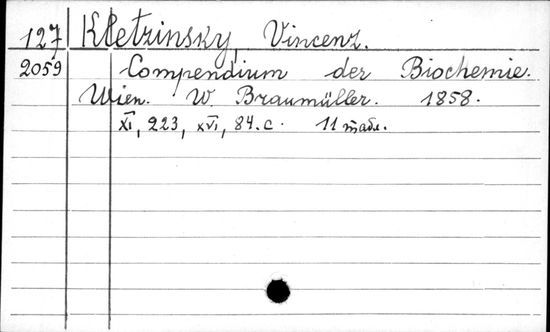 127 Kletzinsky, Vincenz.
2059 Compendium der Biochemie.
Wien. W. Braumüller. 1858.
XI, 223, XVI, 84.c. 11 табл.